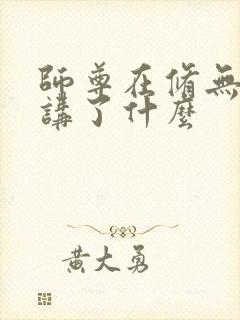 師尊在脩無
講了什麼
黃大勇